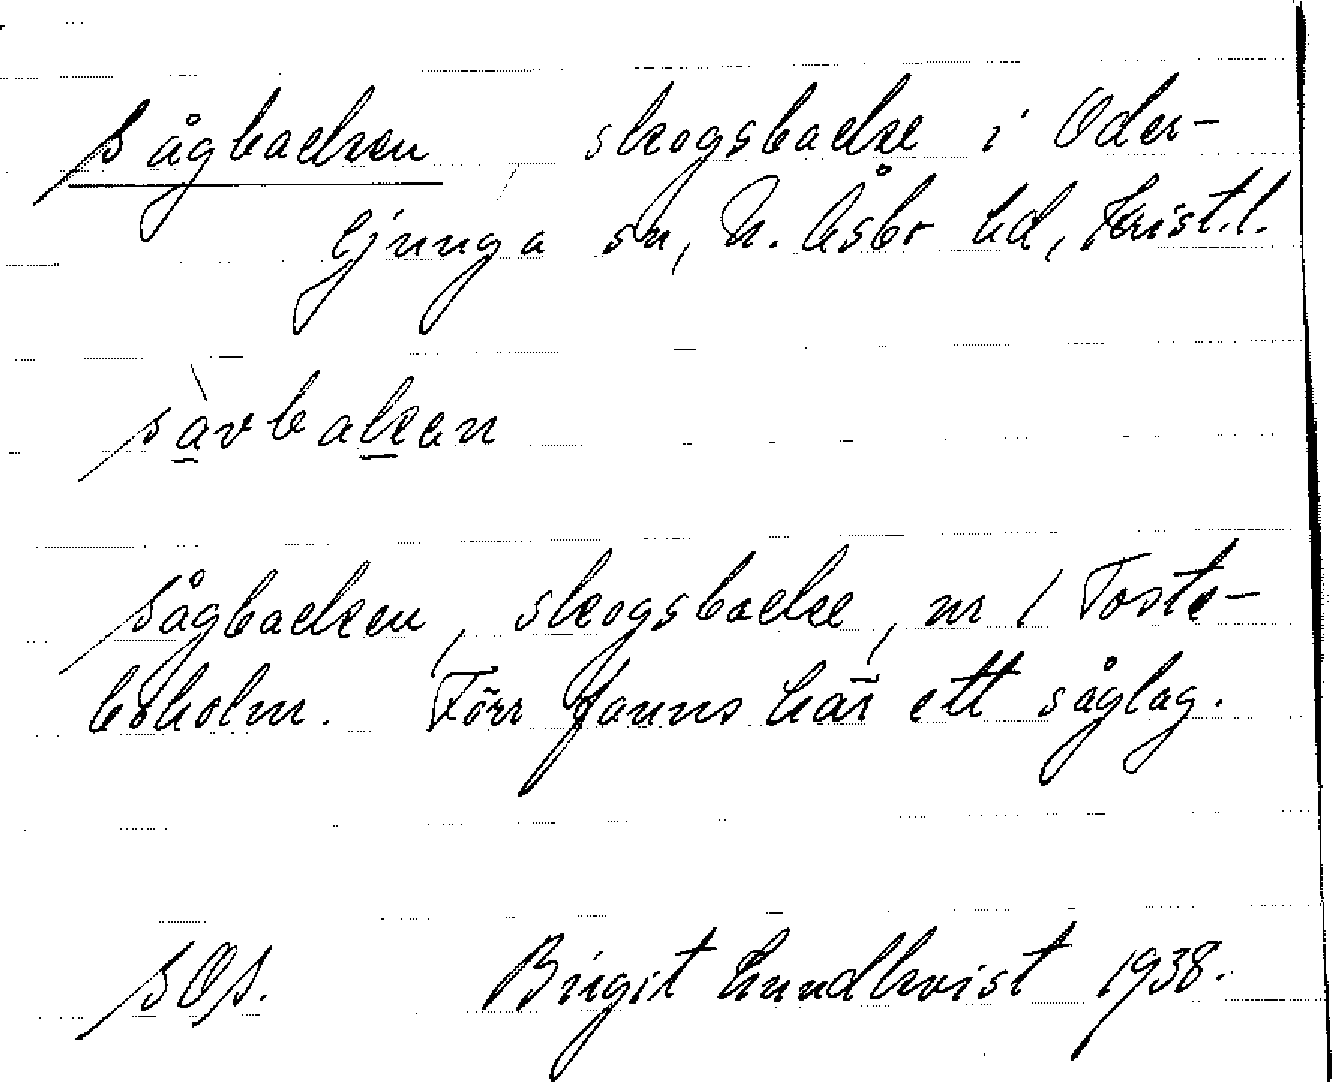 Sågbacken, skogsbacke i Oder-
ljunga sn, N. Åsbo hd, Krist.l.
sàvbakan
Sågbacken, skogsbacke, nr 1 Toste-
boholm. Förr fanns här ett såglag.
SOS. Birgit Lundkvist 1938.